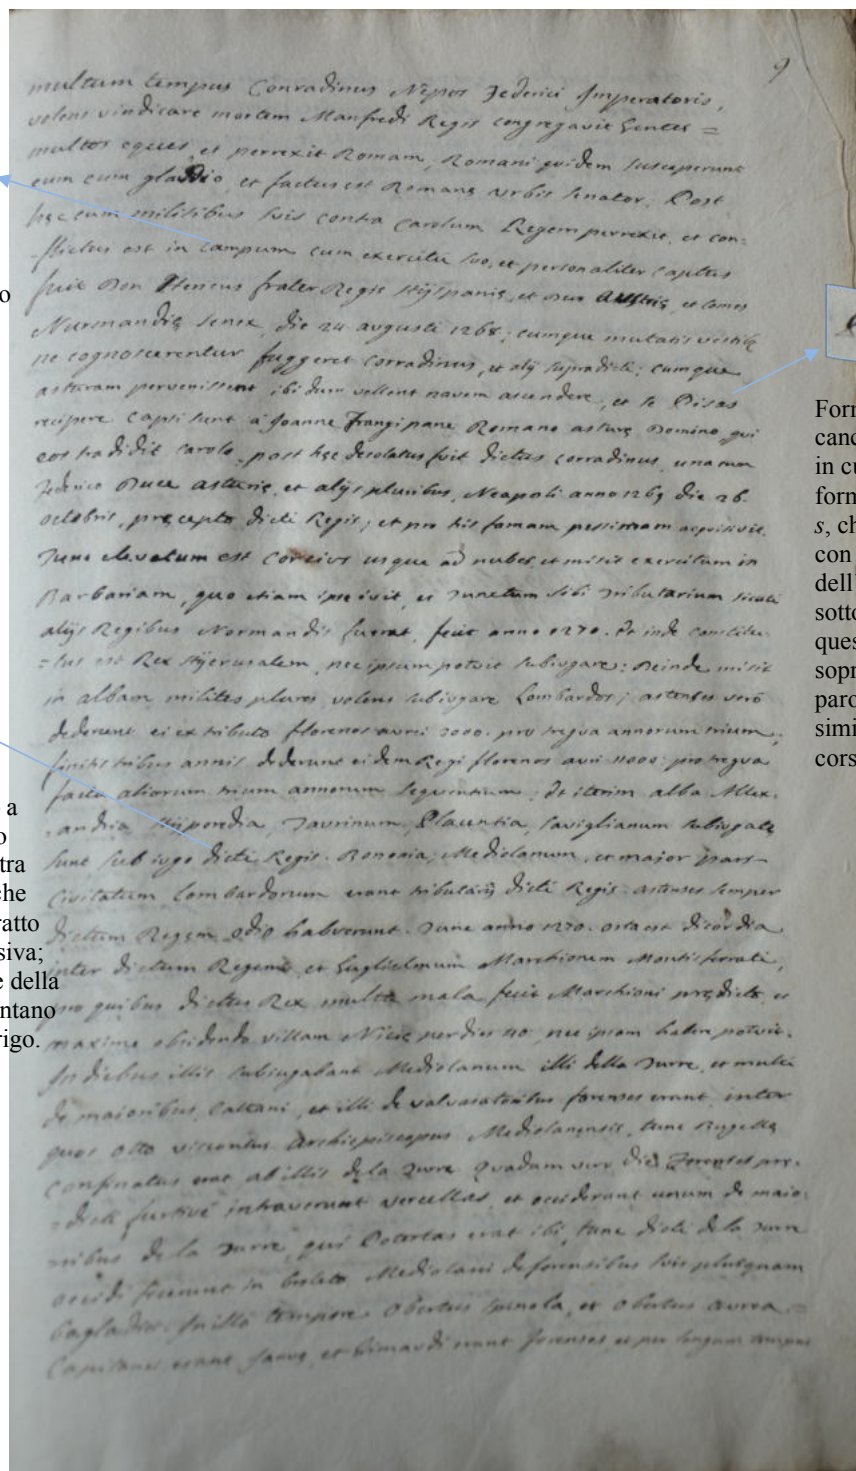 9
multum tempus Conradinus Nepos Federici Imperatoris,
volens vindicare mortem Manfredi Regis congregavit Gentes =
multos eques, et perrexit Romam, Romani quidem susceperunt
eum cum gladio, et factus est Romanę Urbis Senator; Post
hęc cum militibus suis contra Carolum Regem perrexit, et con=
flictus est in Campum cum exercitu suo, et personaliter captus
fuit Don Henricus frater Regis Hyspanię, et Dux Austrię, et Comes
Nurmandię senex, die 24 augusti 1268; cumque mutatis
ne cognoscerentur fuggeret Corradinus, et alij supradicti; cumque
asturam pervenissent ibi dum vellent navem ascendere, et se Pisas
recipere capti sunt a Joanne Frangipane Romano asturę Domino, qui
eos tradidit Carolo, post hęc decolatus fuit dictus Corradinus, una cum
Federico Duce asturię, et alijs pluribus, Neapoli anno 1269 die 26.
octobris, pręcepto dicti Regis; et pro his famam pessimam acquisivit.
Tunc elevatum est usque ad nubes, et misit exercitum in
Barbariam, quo etiam ipse ivit, et Tunetum sibi tributarium sicuti
alijs Regibus Normandis fuerat, fecit anno 1270. Et inde constitu=
=tus est Rex Hyerusalem, nec ipsum potuit subiugare; Deinde misit
in albam milites plures, volens subiugare Lombardos; astenses verò
dederunt ei ex tributo florenos aurei 3000. pro tregua annorum trium,
finitis tribus annis dederunt eidem Regi florenos auri 11000: pro tregua
facta aliorum trium annorum sequentium; et iterim alba Allex=
=andria, Hijporedia, Taurinum, Placentia, Saviglianum subiugatę
sunt sub iugo dicti Regis. Bononia, Mediolanum, et major pars
Civitatum Lombardorum erant tributarij dicti Regis. astenses semper
dictum Regem odio habuerunt. Tunc anno 1270. orta est discordia
inter dictum Regem, et Guglielmum Marchionem Montisferrati,
pro quibus dictus Rex multa mala fecit Marchioni prędicto, et
maxime obsidendo villam Nicię per dies 40 nec ipsam habere potuit.
In diebus illis subiugabant Mediolanum illi della Turre, et multi
de maioribus, Cattani, et illi de valvasoribus forenses erant, inter
quos Otto vicecontus Archiepiscopus Mediolanensis, tunc
confinatus erat ab illis de la Turre. Quadam vero die Forenses prę=
=dicti furtivè intraverunt vercellas, et occiderunt unum de maio=
=ribus de la Turre, qui Potestas erat ibi, tunc dicti de la Turre
occidi fecerunt in Mediolani de forensibus suis plusquam
in illo tempore Obertus Spinola, et Obertus Aurea =
Capitanei erant Januę, et Grimaudi erant forenses, et per longum tempus
o
a
o
tra
che
ratto
siva;
e della
ntano
rigo.
Form
canc
in cu
form
s, ch
con
dell'
sotto
ques
sopr
paro
simi
cors